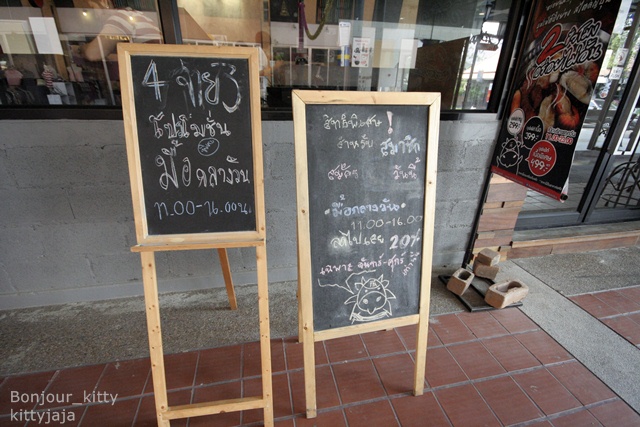 4 จ่าย 3
โปรโมชั่น
มื้อกลางวัน
11.00-16.00น
สิทธิพิเศษ !
สำหรับ สมาชิก
สมัคร วันนี้
มื้อกลางวัน
11.00-16.00
ลดไปเลย 20%
เฉพาะ จันทร์-ศุกร์ เท่านั้น
2
299.-
399.-
499.-
Bonjour_kitty
kittyjaja